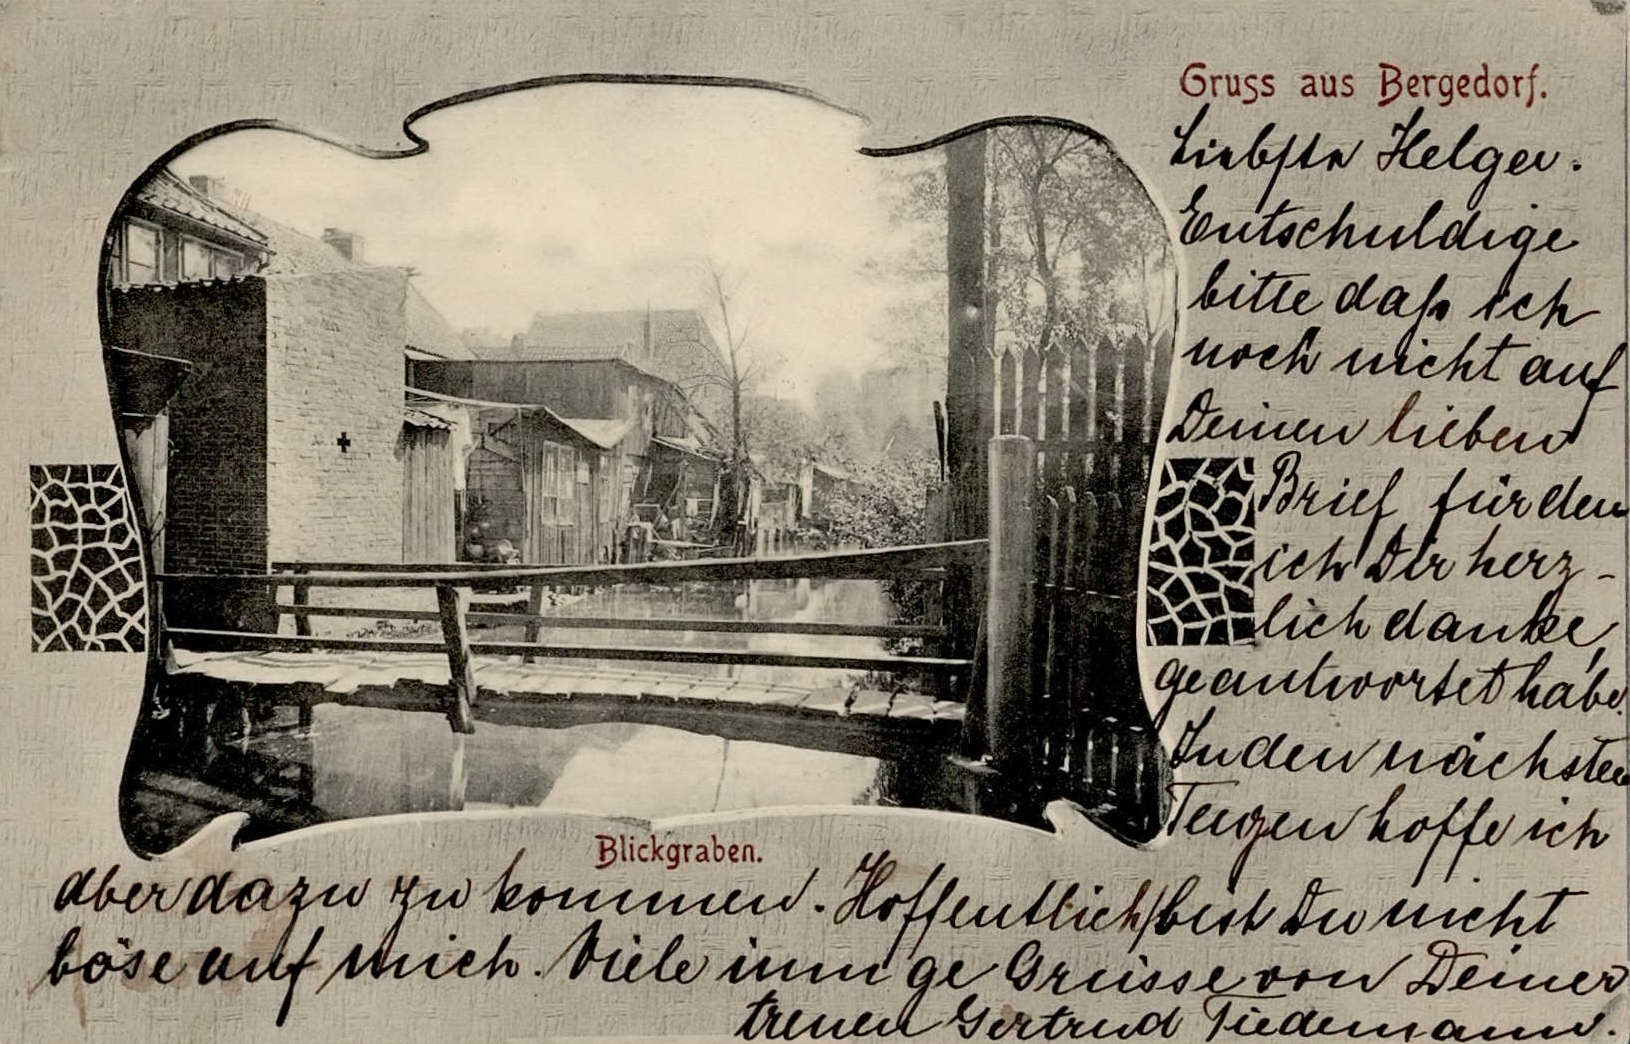 Gruss aus Bergedorf.
Liebste Helga.
Entschuldige
bitte daß ich
noch nicht auf
Deinen lieben
Brief für den
ich Dir herz-
lich danke,
geantwortet habe.
In den nächsten
Tagen hoffe ich
Blickgraben.
aber dazu zu kommen. Hoffentlich bist Du nicht
böse auf mich. Viele innige Grüsse von Deiner
treuen Gertrud Tiedemann.